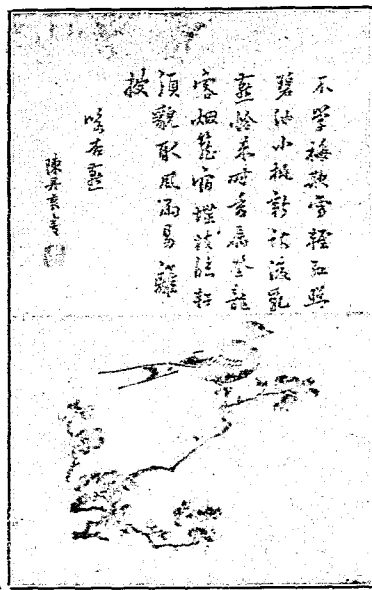 不學梅欺雪輕紅照
碧池小桃新謝後雙
燕恰來時香屬登龍
客烟籠宿蝶枝臨軒
須貌取風雨易離
披
咏杏燕
陳